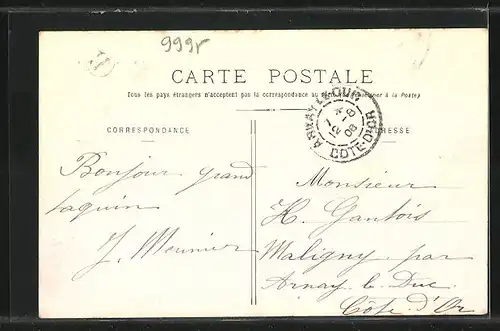 999r
H
CARTE POSTALE
Tous les pays étrangers n'acceptent pas la correspondance au à la Poste)
CORRESPONDANCE
ARNAY-LE-DUC
CÔTE-D'OR
08
Bonjour grand
taquin
J. Meunier
Monsieur
H. Gantois
Maligny par
Arnay le Duc
Côte d'Or